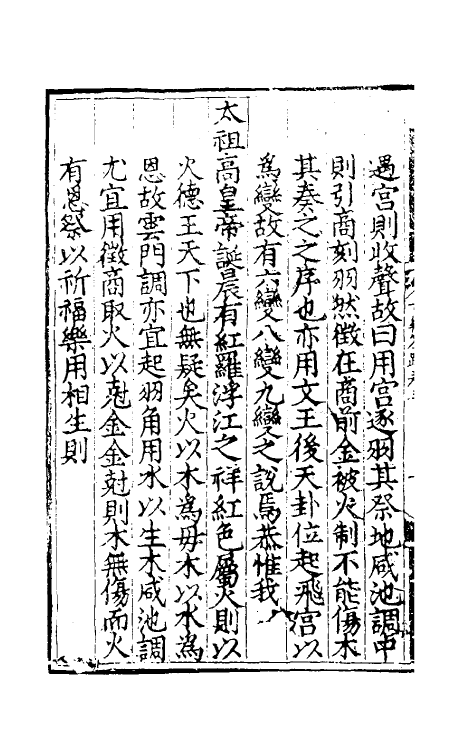 遇宫則收聲故曰用宫逐羽其祭地咸池調中
則引商刻羽然徵在商前金被火制不能傷木
其奏之之序也亦用文王後天卦位起飛宫以
爲變故有六變八變九變之說焉恭惟我
太祖高皇帝誕晨有紅羅浮江之祥紅色屬火則以
火德王天下也無疑矣火以木爲毋木以水爲
恩故雲門調亦宜起羽角用水以生木咸池調
尤宜用徵商取火以尅金金尅則木無傷而火
有恩祭以祈福樂用相生則